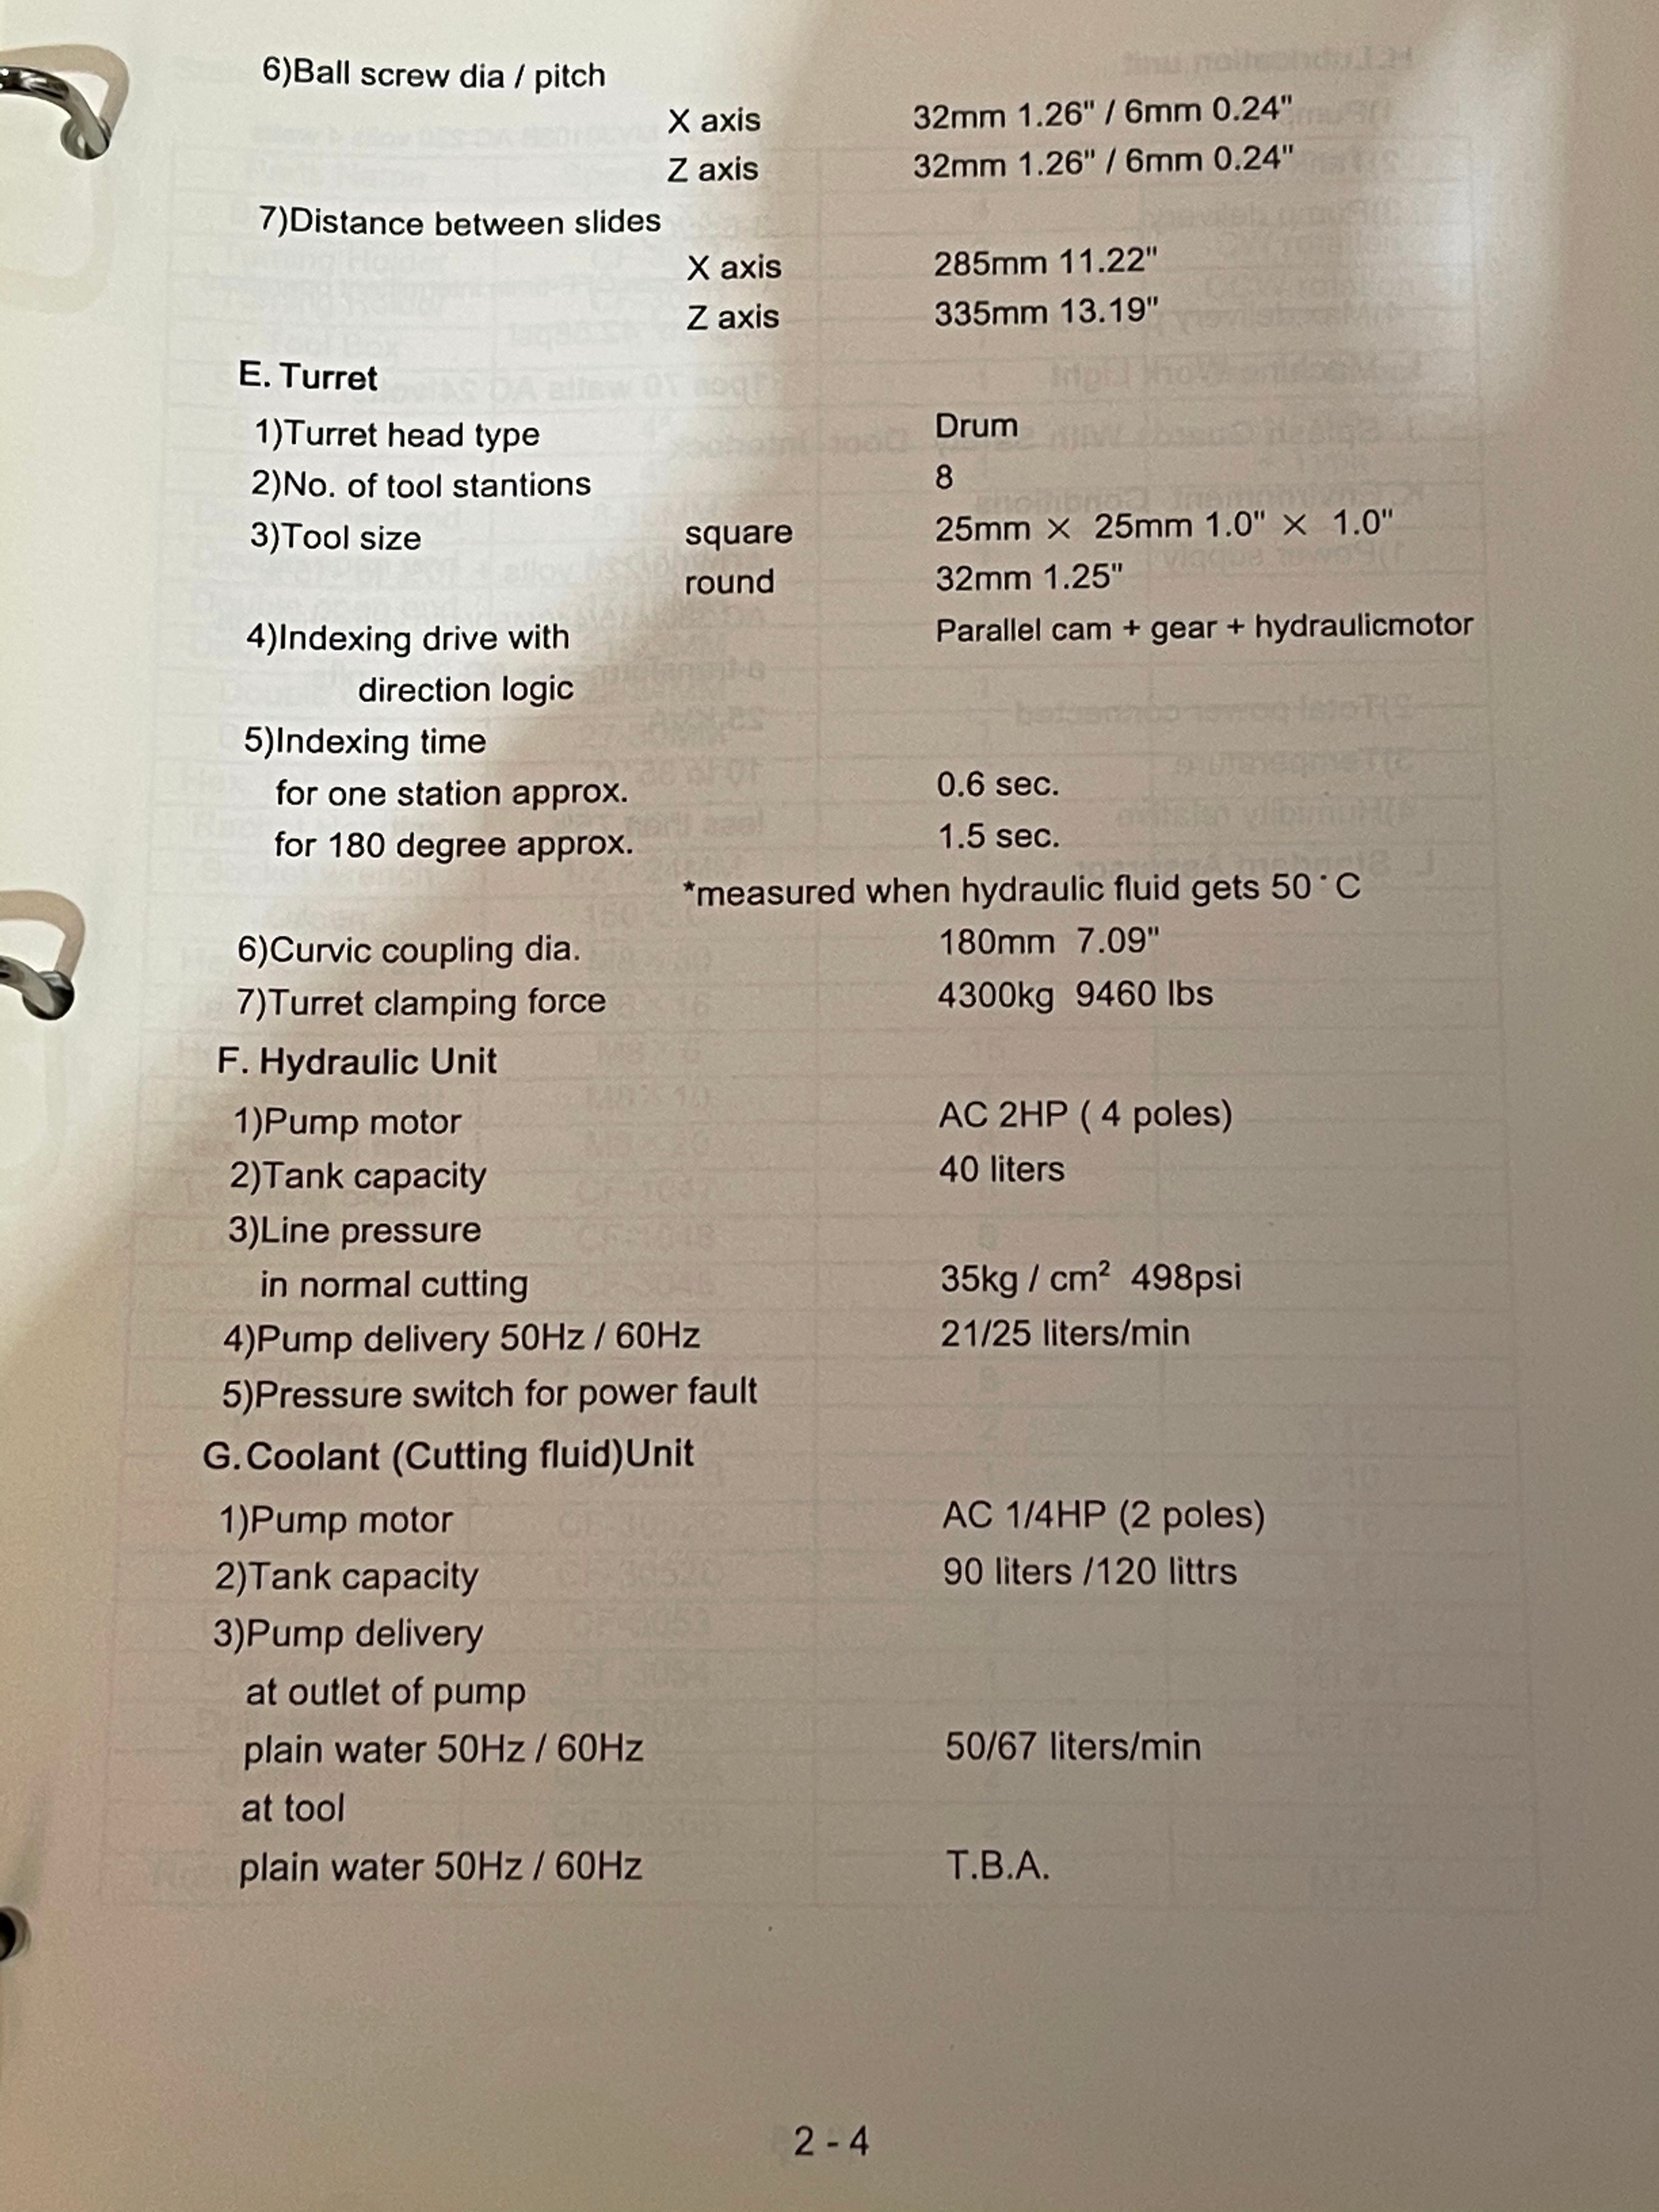 6)Ball screw dia / pitch
X axis 32mm 1.26" / 6mm 0.24"
Z axis 32mm 1.26" / 6mm 0.24"
7)Distance between slides
X axis 285mm 11.22"
Z axis 335mm 13.19"
E. Turret
1)Turret head type Drum
2)No. of tool stantions 8
3)Tool size square 25mm × 25mm 1.0" × 1.0"
round 32mm 1.25"
4)Indexing drive with Parallel cam + gear + hydraulicmotor
direction logic
5)Indexing time
for one station approx. 0.6 sec.
for 180 degree approx. 1.5 sec.
*measured when hydraulic fluid gets 50˙C
6)Curvic coupling dia. 180mm 7.09"
7)Turret clamping force 4300kg 9460 lbs
F. Hydraulic Unit
1)Pump motor AC 2HP ( 4 poles)
2)Tank capacity 40 liters
3)Line pressure
in normal cutting 35kg / cm² 498psi
4)Pump delivery 50Hz / 60Hz 21/25 liters/min
5)Pressure switch for power fault
G. Coolant (Cutting fluid)Unit
1)Pump motor AC 1/4HP (2 poles)
2)Tank capacity 90 liters /120 littrs
3)Pump delivery
at outlet of pump
plain water 50Hz / 60Hz 50/67 liters/min
at tool
plain water 50Hz / 60Hz T.B.A.
2 - 4